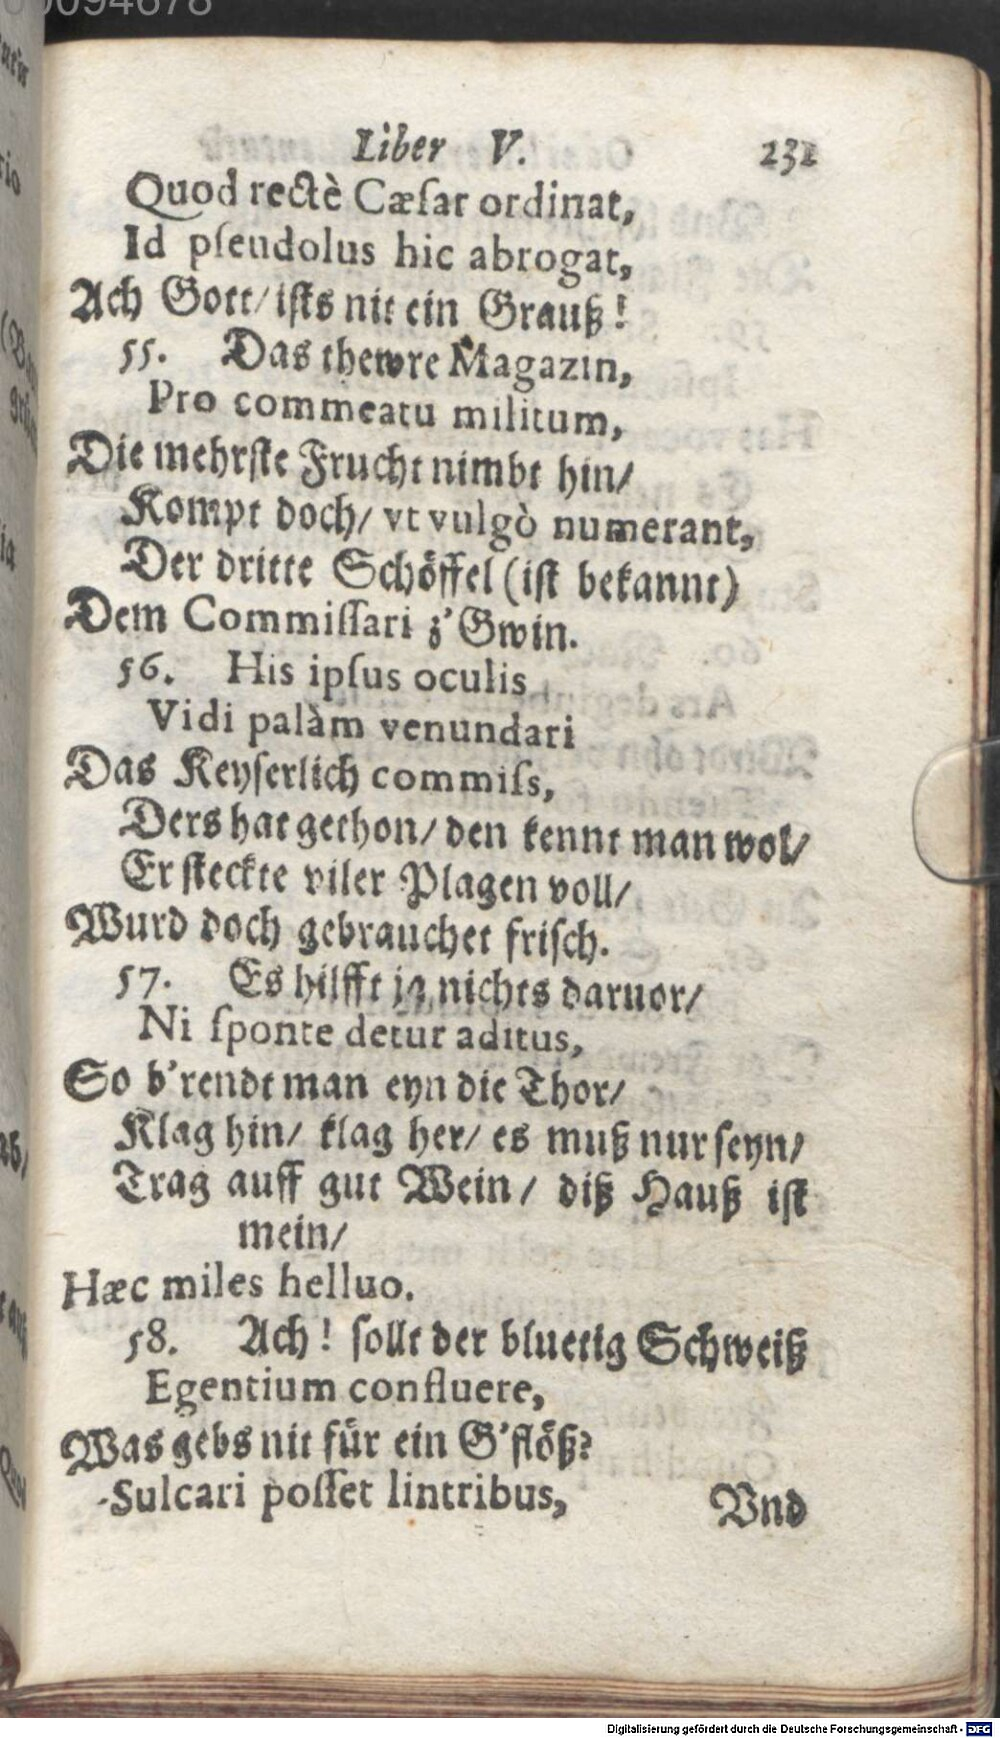 00094678
Liber V. 231
Quod rectè Cæſar ordinat,
Id pſeudolus hic abrogat,
Ach Gott/ iſts nit ein Grauß!
55. Das thewre Magazin,
Pro commeatu militum,
Die mehrſte Frucht nimbt hin/
Kompt doch/ vt vulgò numerant,
Der dritte Schöffel (iſt bekannt)
Dem Commiſſari z'Gwin.
56. His ipſus oculis
Vidi palàm venundari
Das Keyſerlich commiſs,
Ders hat gethon/ den kennt man wol/
Er ſteckte viler Plagen voll/
Wurd doch gebrauchet friſch.
57. Es hilfft ja nichts daruor/
Ni ſponte detur aditus,
So b'rendt man eyn die Thor/
Klag hin/ klag her/ es muß nur ſeyn/
Trag auff gut Wein/ diß Hauß iſt
mein/
Hæc miles helluo.
58. Ach! ſollt der bluetig Schweiß
Egentium confluere,
Was gebs nit für ein G'flöß?
Sulcari poſſet lintribus,
Vnd
Digitalisierung gefördert durch die Deutsche Forschungsgemeinschaft - DFG